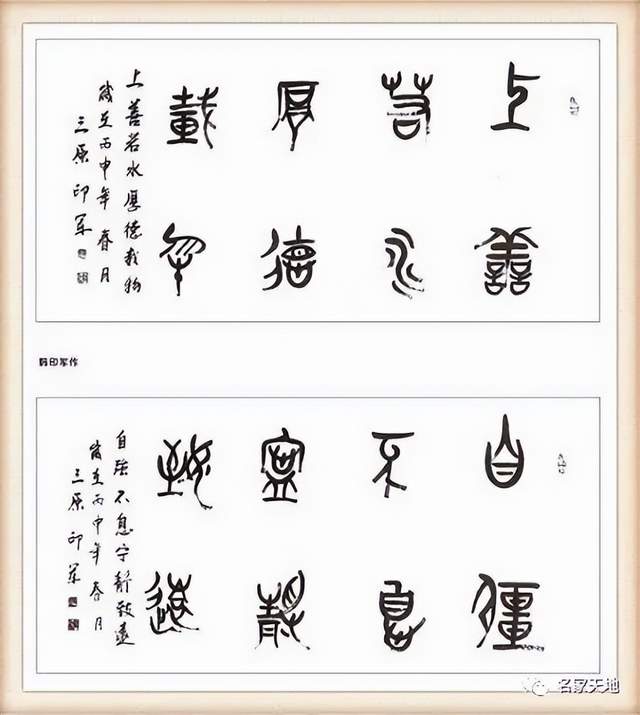 上善
若水
厚德
載物
上善若水厚德載物
歲在丙申年春月
三原印军
韩印军作
自彊
不息
寧靜
致遠
自強不息宁靜致遠
歲在丙申年春月
三原印军
名家天地